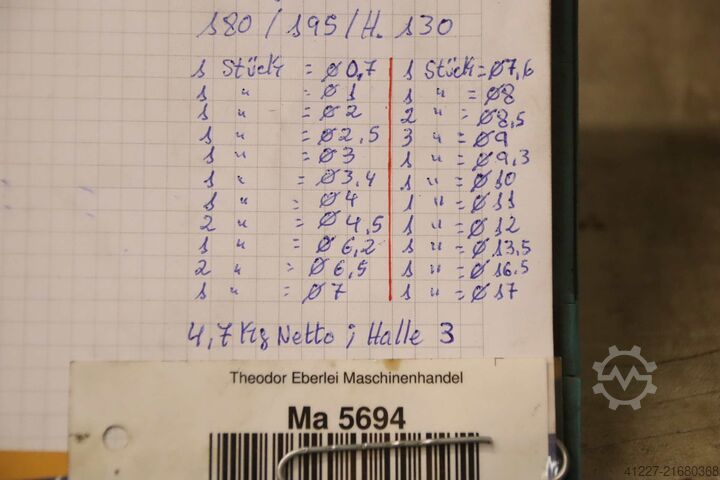 180 / 195 / H. 130
1 Stück = Ø 0,7
1 " = Ø 1
1 " = Ø 2
1 " = Ø 2,5
1 " = Ø 3
1 " = Ø 3,4
1 " = Ø 4
2 " = Ø 4,5
1 " = Ø 6,2
2 " = Ø 6,5
1 " = Ø 7
1 Stück = Ø 7,6
1 " = Ø 8
2 " = Ø 8,5
3 " = Ø 9
1 " = Ø 9,3
1 " = Ø 10
1 " = Ø 11
1 " = Ø 12
1 " = Ø 13,5
1 " = Ø 16.5
1 " = Ø 17
4,7 Kg Netto ; Halle 3
Theodor Eberlei Maschinenhandel
Ma 5694
41227-21680368